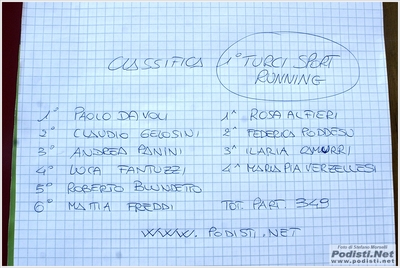 CLASSIFICA 1° TURCI SPORT
RUNNING
1° PAOLO DAVOLI 1^ ROSA ALFIERI
2° CLAUDIO GELOSINI 2^ FEDERICA PODDESU
3° ANDREA PANINI 3^ ILARIA CAMURRI
4° LUCA FANTUZZI 4^ MARIA PIA VERZELLESI
5° ROBERTO BLUNDETO
6° MATTIA FREDDI TOT. PART. 349
WWW. PODISTI.NET
Foto di Stefano Morselli
Podisti.Net
www.podisti.net